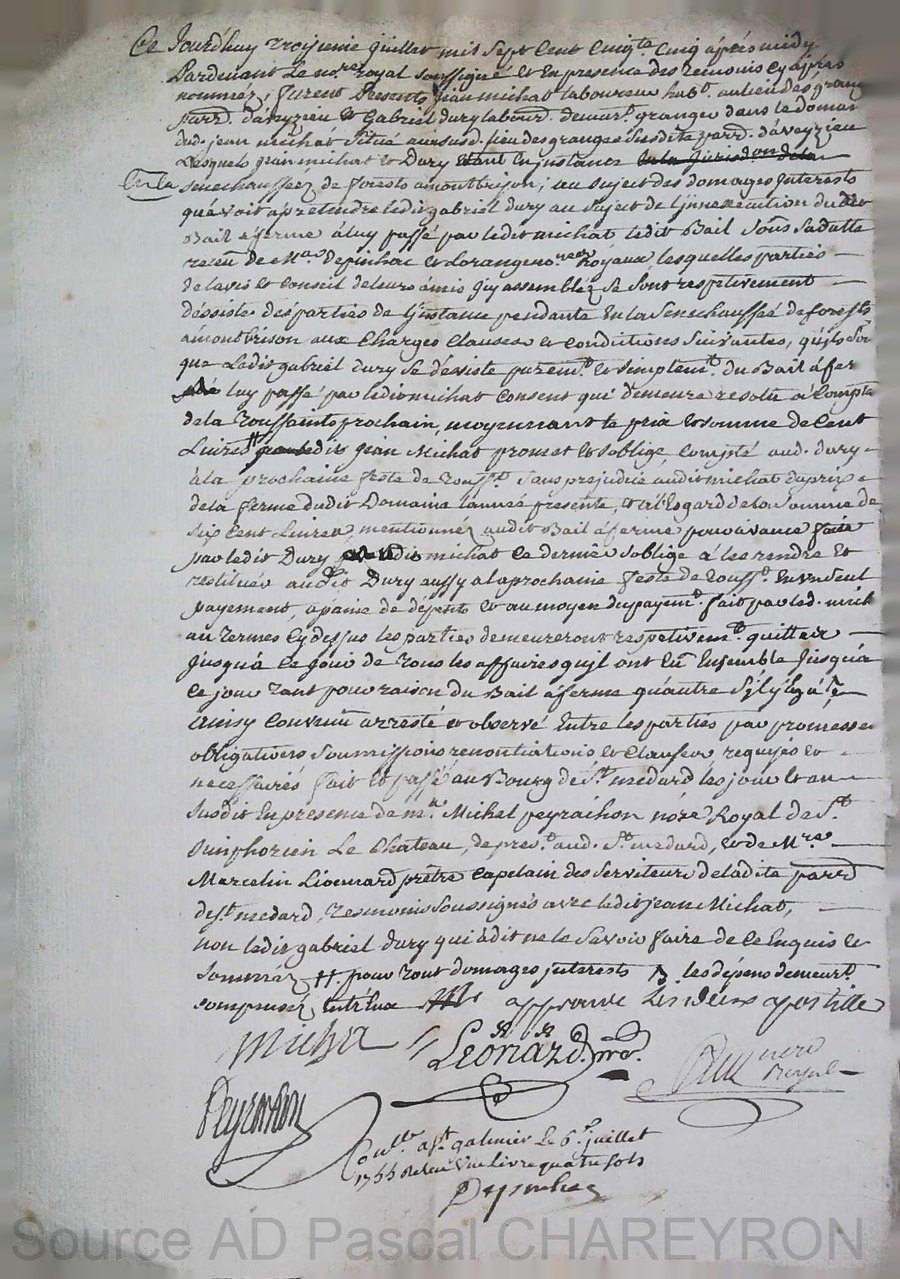 Ce Jourdhuy troisieme Juillet mil Sept Cent Cinqte Cinq apres midy
Pardevant Le nore royal soussigné et En presence des temoins cy apres
nommez, furent Presents Jean michat laboureur habt. au lieu des grang
parr. daveyzieu et Gabriel dury labour. demeurt. granger dans le domai
dud. jean michat Situé au susd. lieu des granges susdite parr. daveyzieu
Lesquels jean michat et dury Etant En jnstance En la Jurisdon de la
En la
senechaussée de forests a montbrison, au sujet des domages Interests
qu'avoit a pretendre ledit gabriel dury au sujet de l'jnnexecution du
Bail a ferme a luy passé par ledit michat ledit Bail sous sa datte
receu de Mes depinhac et Lorange nores Royaux lesquelles parties
de l'avis et Conseil de leurs amis quy assemblez se sont respetivement
desistés des parties de l'jnstance pendante En la Senechaussée de forests
a montbrison aux Charges Clauses et Conditions Suivantes, qu'ils Son
que Ledit gabriel dury se desiste puremt. et simplemt. du Bail a fer
luy passé par ledit michat Consent qu'il demeure resolu a Compte
de la Toussaints prochain, moyennant le prix et somme de Cent
Livres # que ledit jean Michat promet et s'oblige, Compté aud. dury
a la prochaine feste de Touss. Sans prejudice audit michat du prix
de la ferme dudit Domaine l'année presente, et a l'Esgard de la Somme de
six Cent Livres, mentionnée audit Bail a ferme pour avance faite
par ledit Dury michat Ce dernier s'oblige a les rendre et
restituer audit Dury aussy a la prochaine feste de Touss. En un seul
payement, a peine de depents et au moyen du payemt. fait par led. mich
au termes Cy dessus les parties demeureront respetivemt. quittes
jusqu'a Ce jour de Tous les affaires qu'jl ont Eu Ensemble Jusqu'a
Ce jour Tant pour raison du Bail a ferme qu'autre
Ainsy Convenu arresté et observé Entre les parties par promesses
obligations soumissions renontiations et Clauses requises et
necessaires fait et passé au Bourg de St. medard les jour et an
Susdit En presence de me. Michel peyraichon nore Royal de St.
Simphorien Le Chateau, de prest. aud. St. medard, et de Mre
Marcelin Lionnard prêtre Capelain des Serviteurs de ladite parr
de St. medard, Tesmoins Soussignés avec ledit jean Michat,
non ledit gabriel dury qui a dit ne le Savoir faire de Ce Enquis et
Sommez, # pour Tout domages jnterests les depens demeurt.
Compensez Entre Eux approuvé Les deux apostille
Michat
Leonard pre.
nore
Royal
Peyrachon
Conllé a St. galmier Le 6e. juillet
1755 Receu Une livre quatre sols
Source AD Pascal CHAREYRON